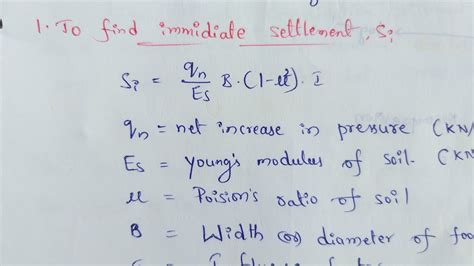 1. To find immidiate settlement, Si
Si = qn/Es B.(1-μ²). I
qn = net increase in pressure (KN/
Es = Young's modulus of soil. (KN
μ = Poision's ratio of soil
B = Width (or) diameter of foo